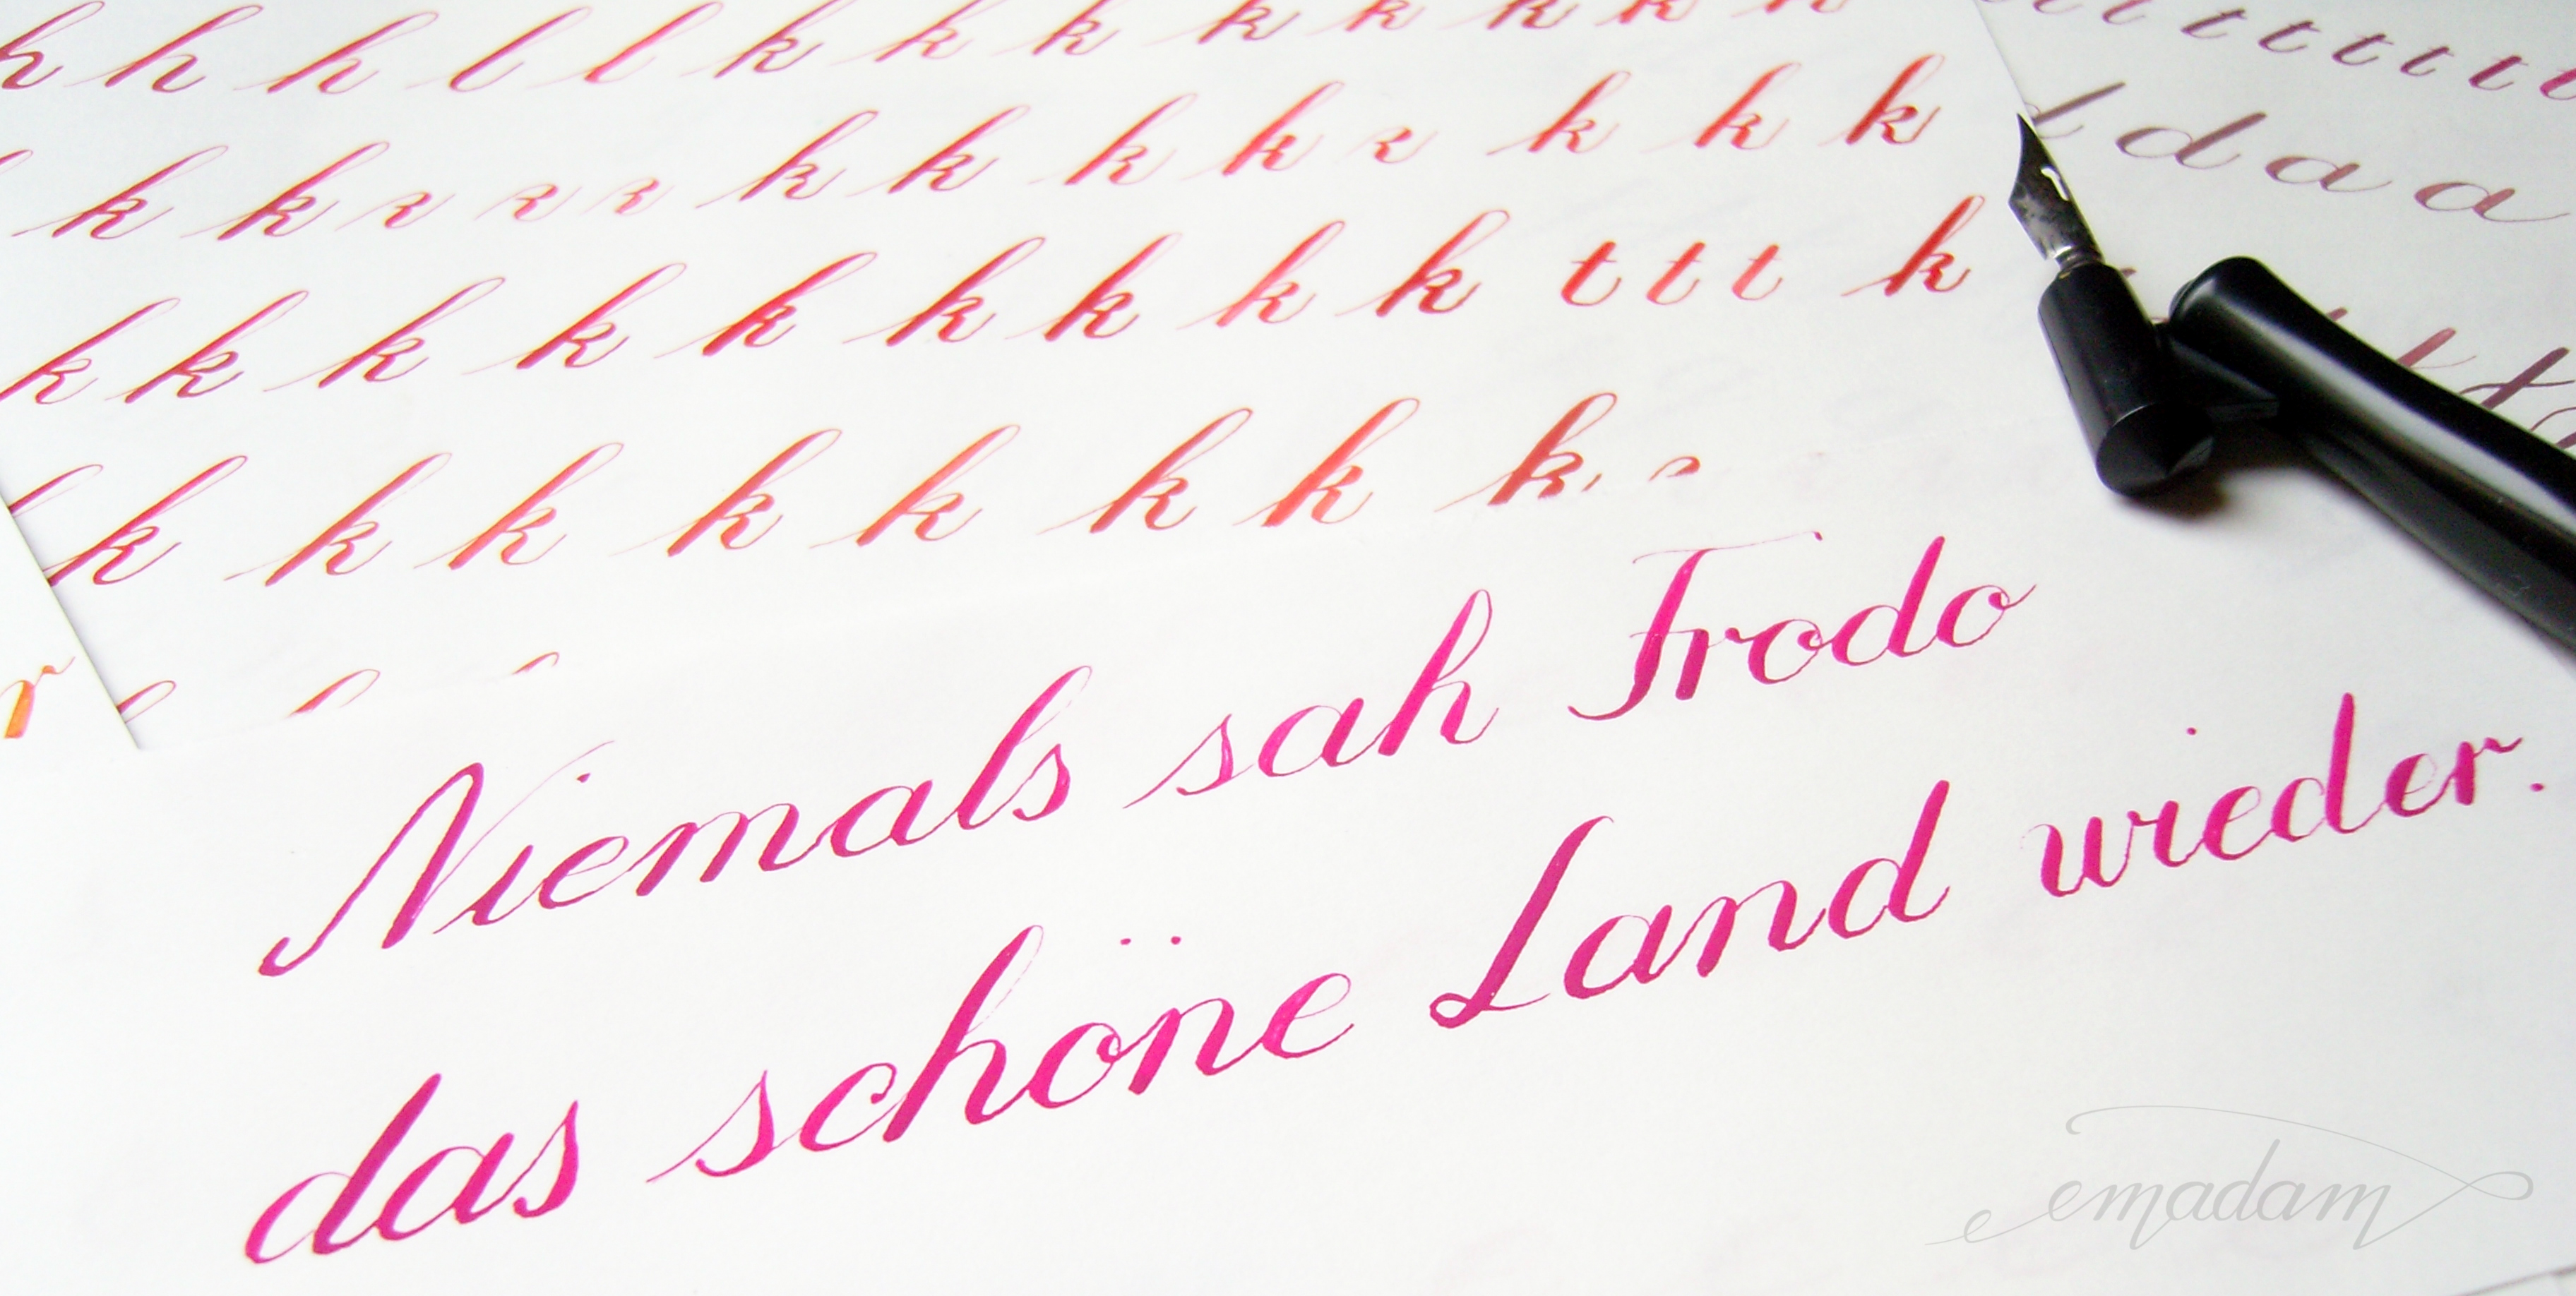 h h h l l k k k k k k k k
k k r r r k k k k r k k k
k k k k k k k k k t t t k
k k k k k k k k k
t t t t t t
d a a
r
Niemals sah Frodo
das schöne Land wieder.
emadam